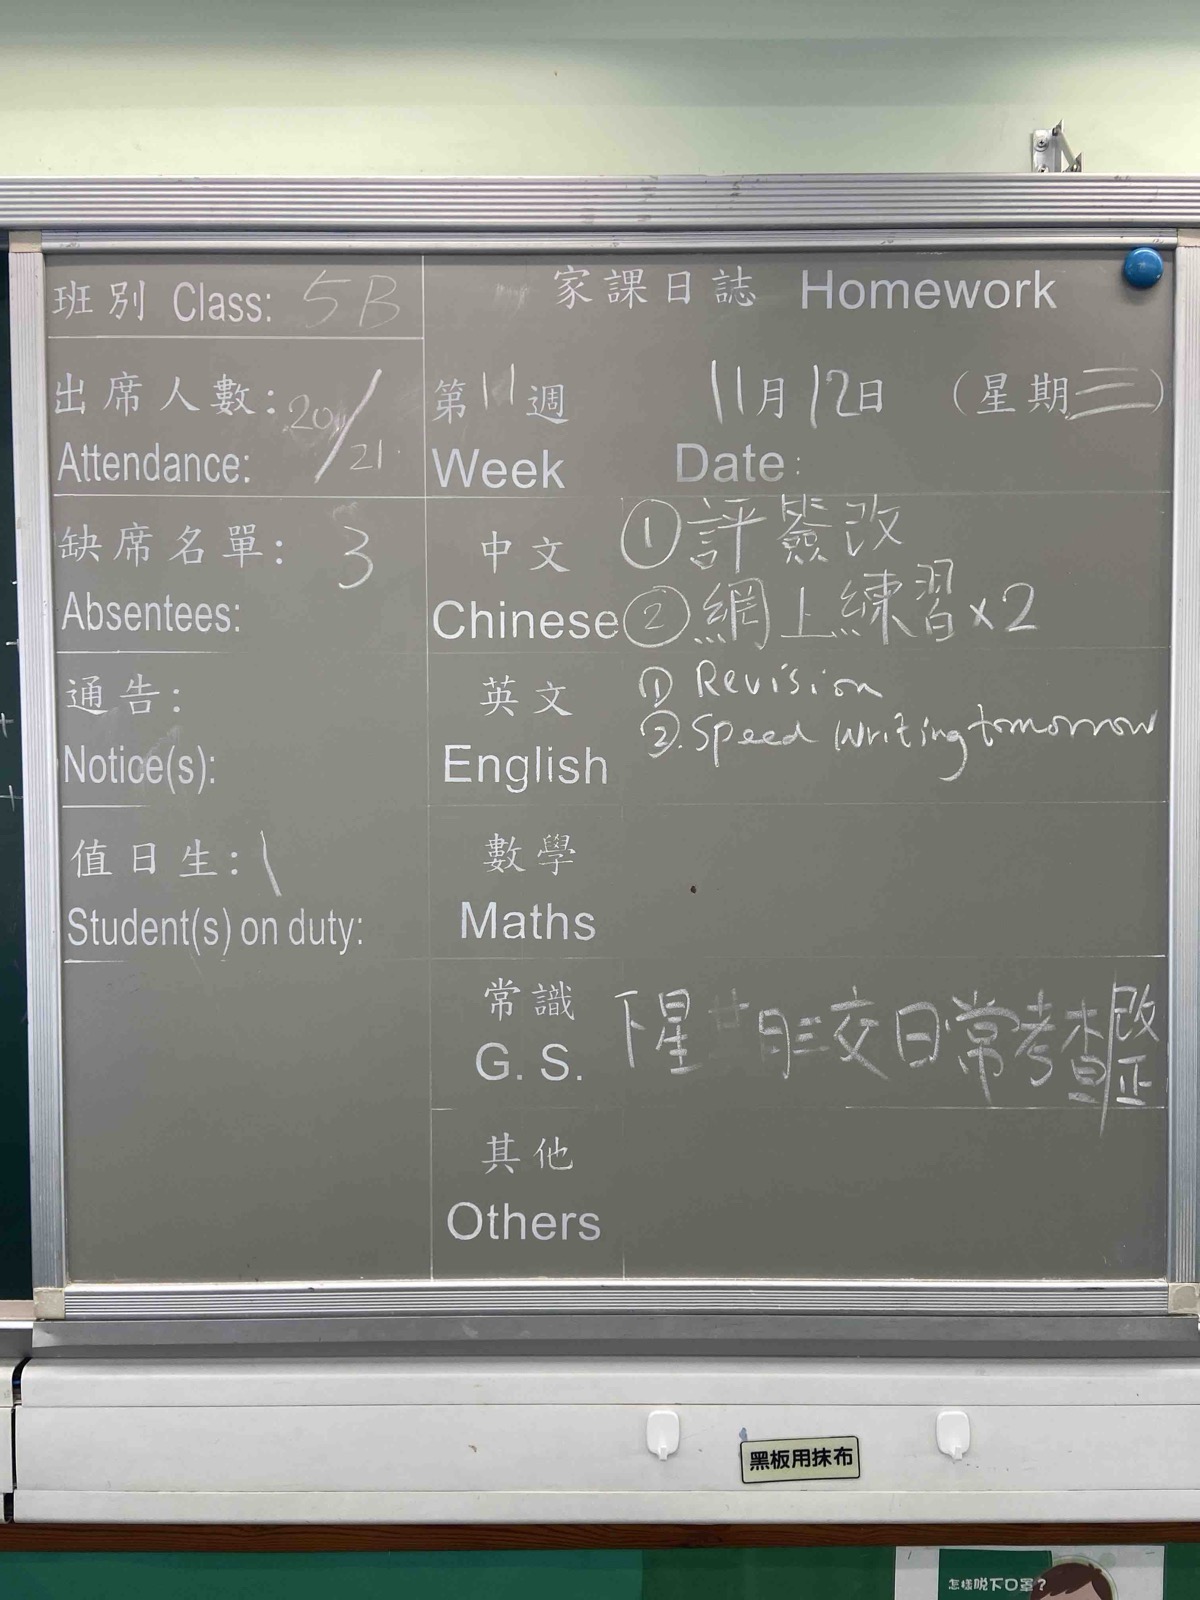 班別 Class: 5B
家課日誌 Homework
出席人數: 20/21
Attendance:
第11週 11月12日 (星期三)
Week Date:
缺席名單: 3
Absentees:
中文 ①評簽改
Chinese ②網上練習x2
通告:
Notice(s):
英文 ① Revision
English ②. Speed Writing tomorrow
值日生: \
Student(s) on duty:
數學
Maths
常識 下星 三交日常考查改正
G. S.
其他
Others
黑板用抹布
怎樣脫下口罩?